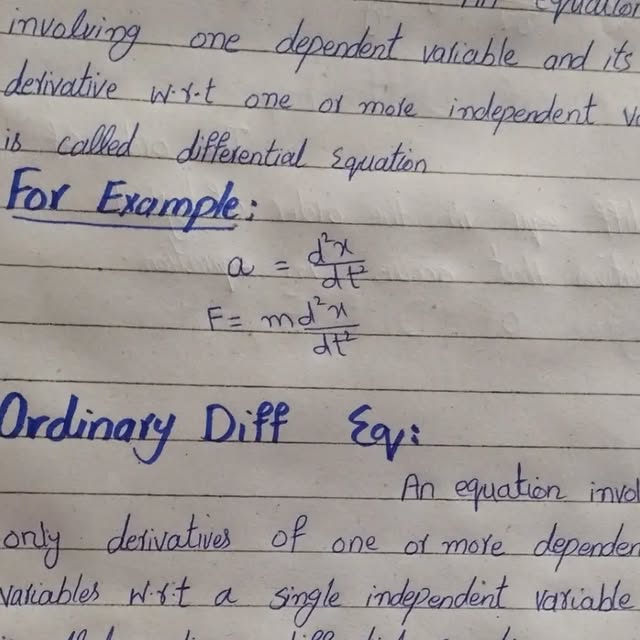 An Equation
involving one dependent variable and its
derivative w.r.t one or more independent
is called differential Equation
For Example:
a = d²x/dt²
F = md²x/dt²
Ordinary Diff Eq:
An equation invol
only derivatives of one or more dependen
variables w.r.t a single independent variable